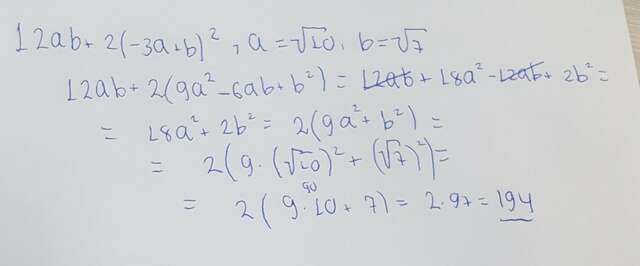 12ab + 2(-3a+b)², a = √10, b = √7
12ab + 2(9a² - 6ab + b²) = 12ab + 18a² - 12ab + 2b² =
= 18a² + 2b² = 2(9a² + b²) =
= 2(9·(√10)² + (√7)²) =
90
= 2(9·10 + 7) = 2·97 = 194